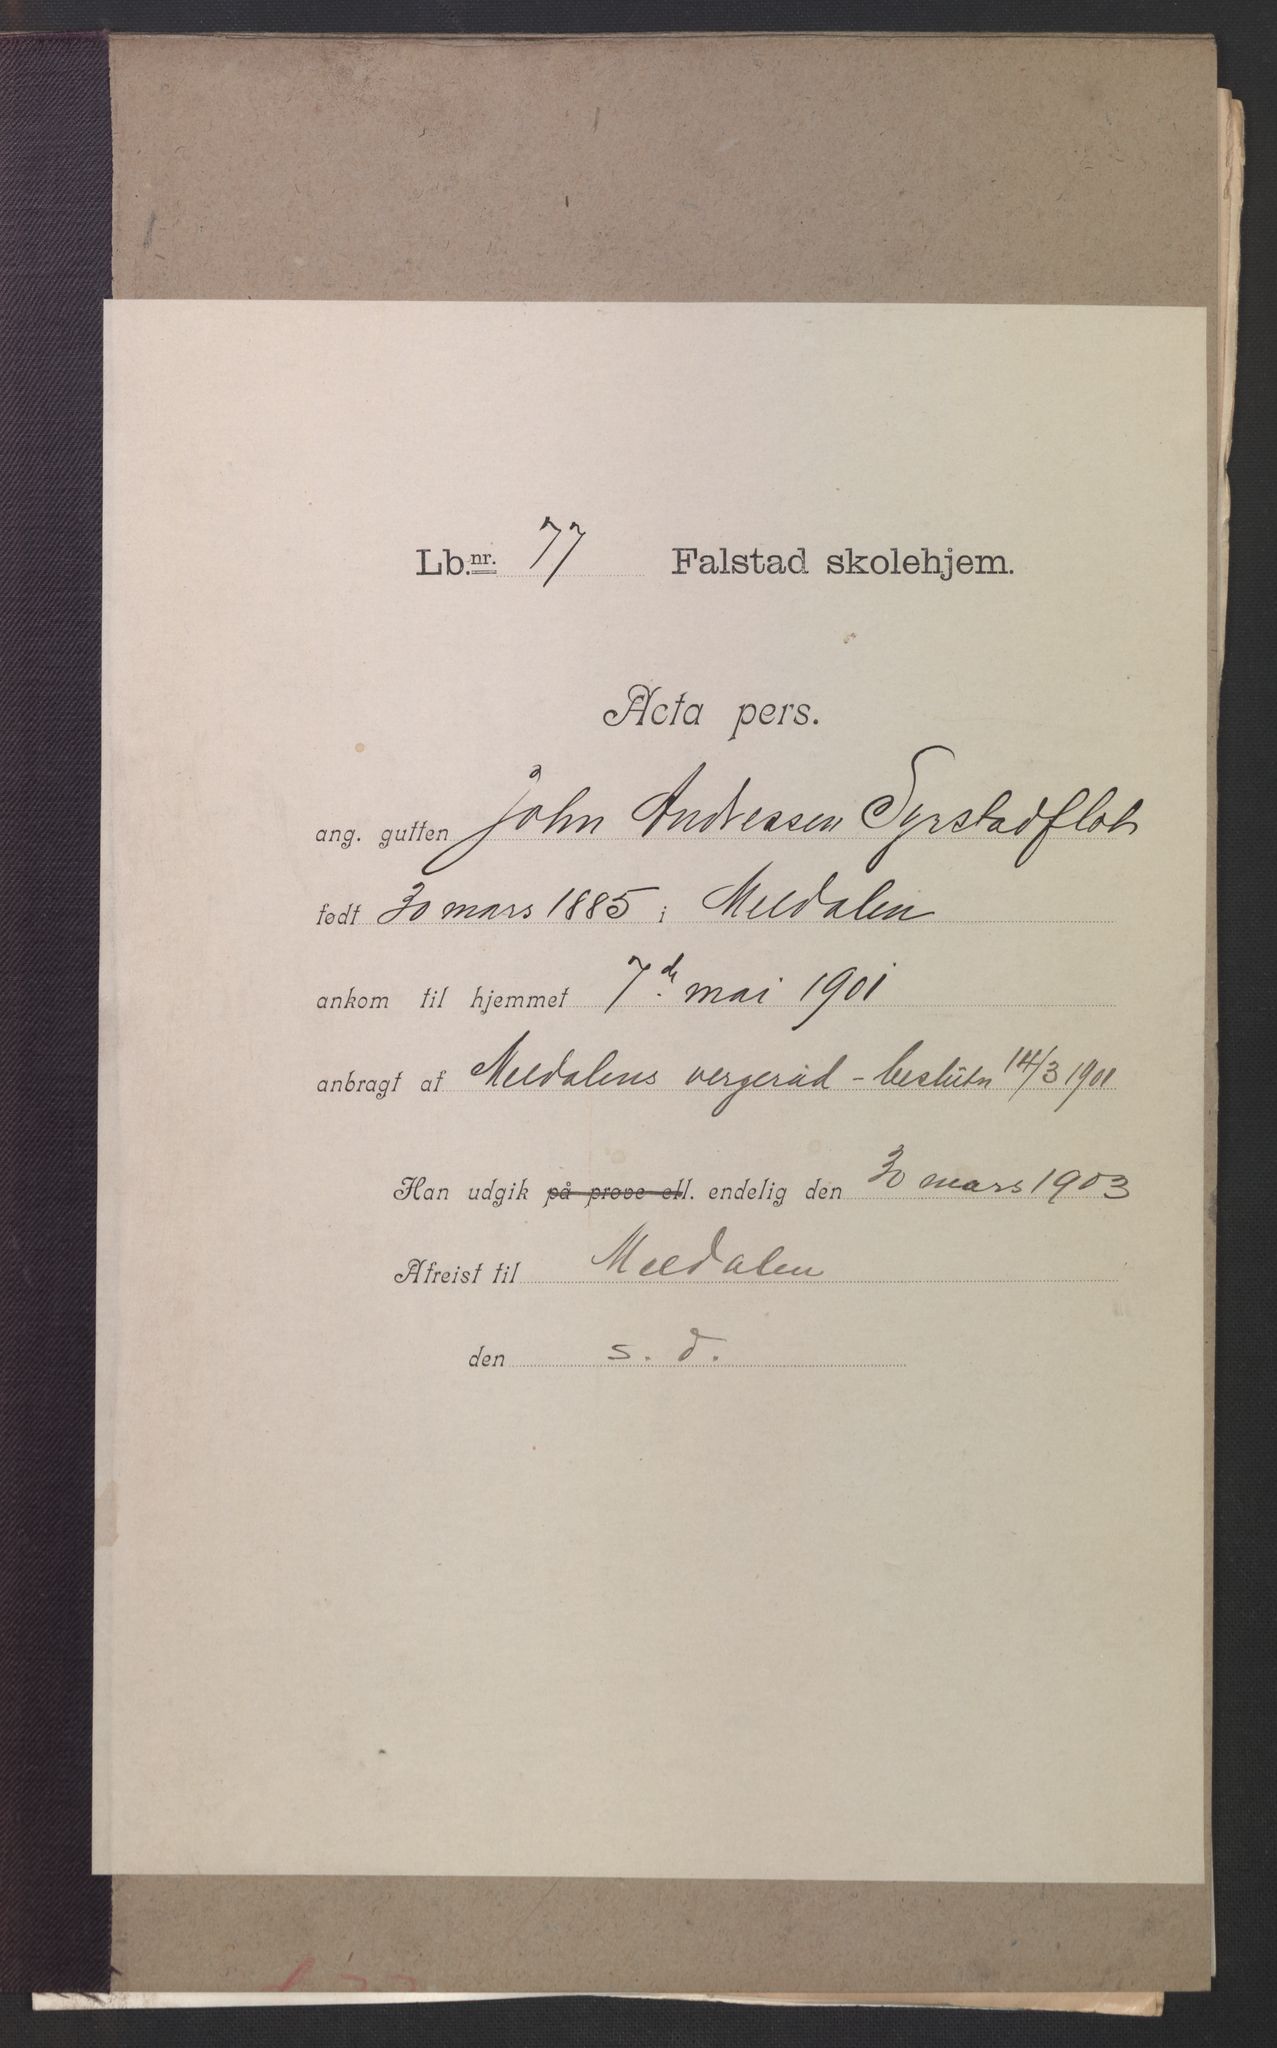 Lb.nr. 77 Falstad skolehjem.
Acta pers.
ang. gutten John Andressen Syrstadflot
født 30 mars 1885 i Meldalen
ankom til hjemmet 7de mai 1901
anbragt af Meldalens vergeråd - beslutn 14/3 1901
Han udgik på prove ell. endelig den 30 mars 1903
Afreist til Meldalen
den s. d.